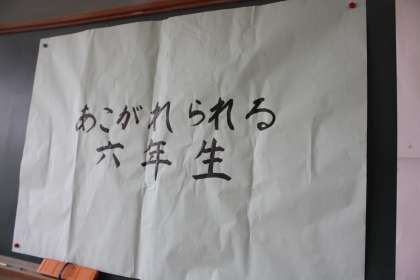 あこがれられる
六年生